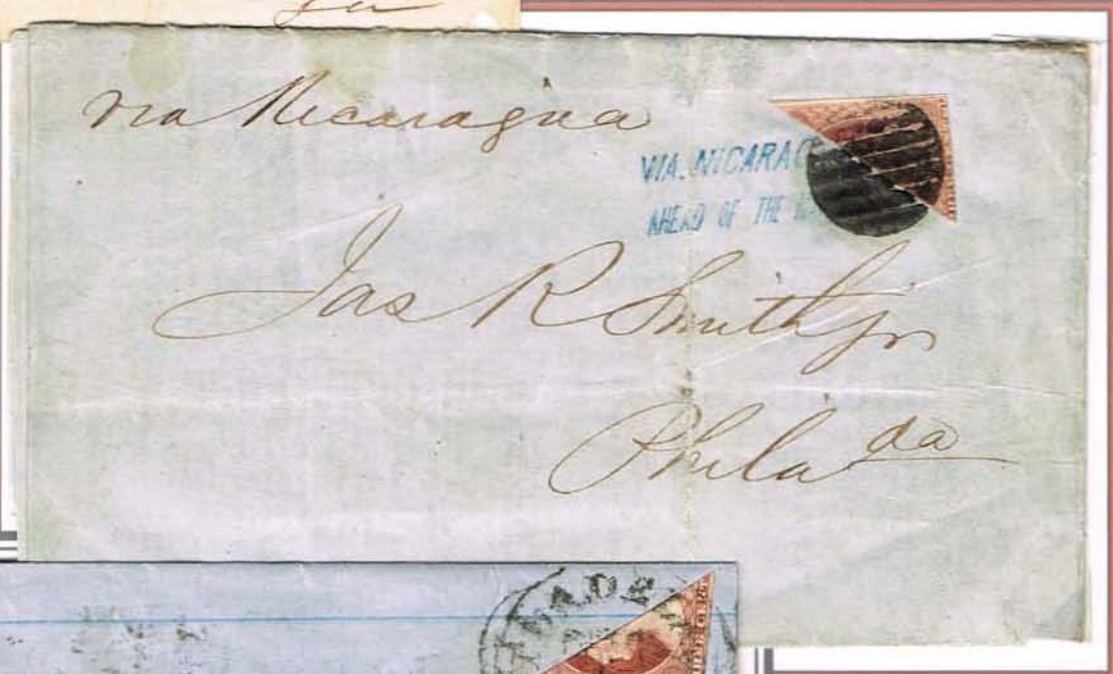 via Nicaragua
VIA. NICARAG
AHEAD OF THE
Jas R Smith Jr
Philada